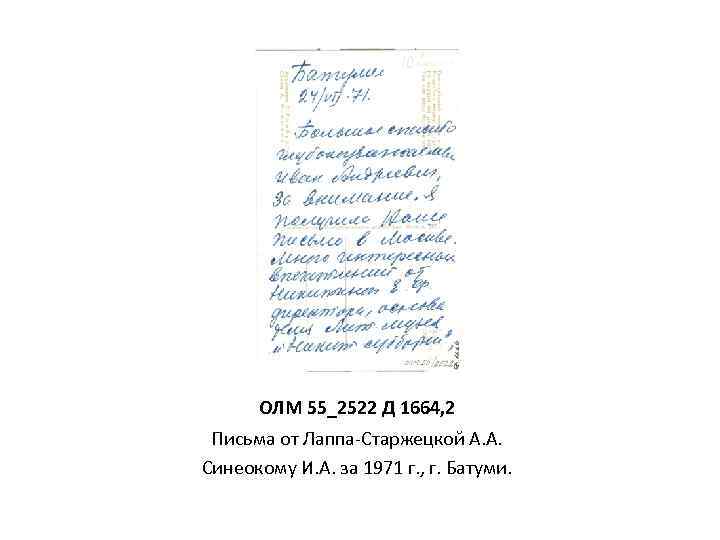 Батуми
24/VII-71.
Большое спасибо
глубокоуважаемый
Иван Андреевич,
за внимание. Я
получила Ваше
письмо в Москве.
Много интересных
впечатлений от
Никитинск
директора, основа
Лит музея
"Никит субботник",
ОЛМ 55_2522 Д 1664,2
Письма от Лаппа-Старжецкой А. А.
Синеокому И.А. за 1971 г. , г. Батуми.